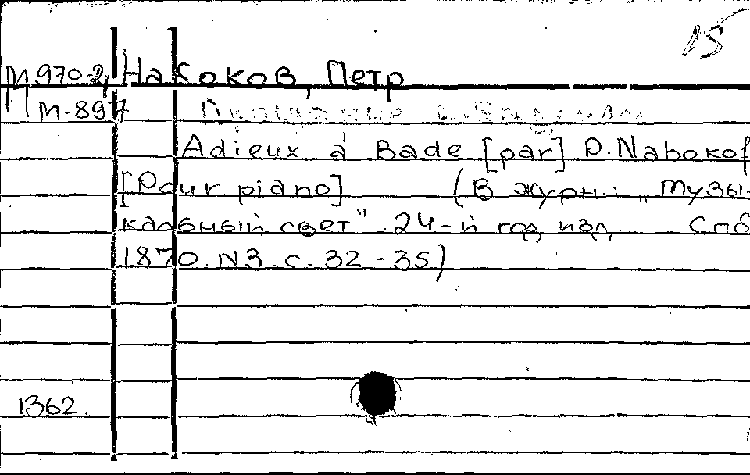 15
М 970-2, Накоков, Петр
М-897 Прощание с
Adieux à Bade [par] P. Nabokof
[Pour piano] (В журн.: „Музы-
кальный свет" 24-й год изд. Спб
1870. N3. с. 32-35)
1362.